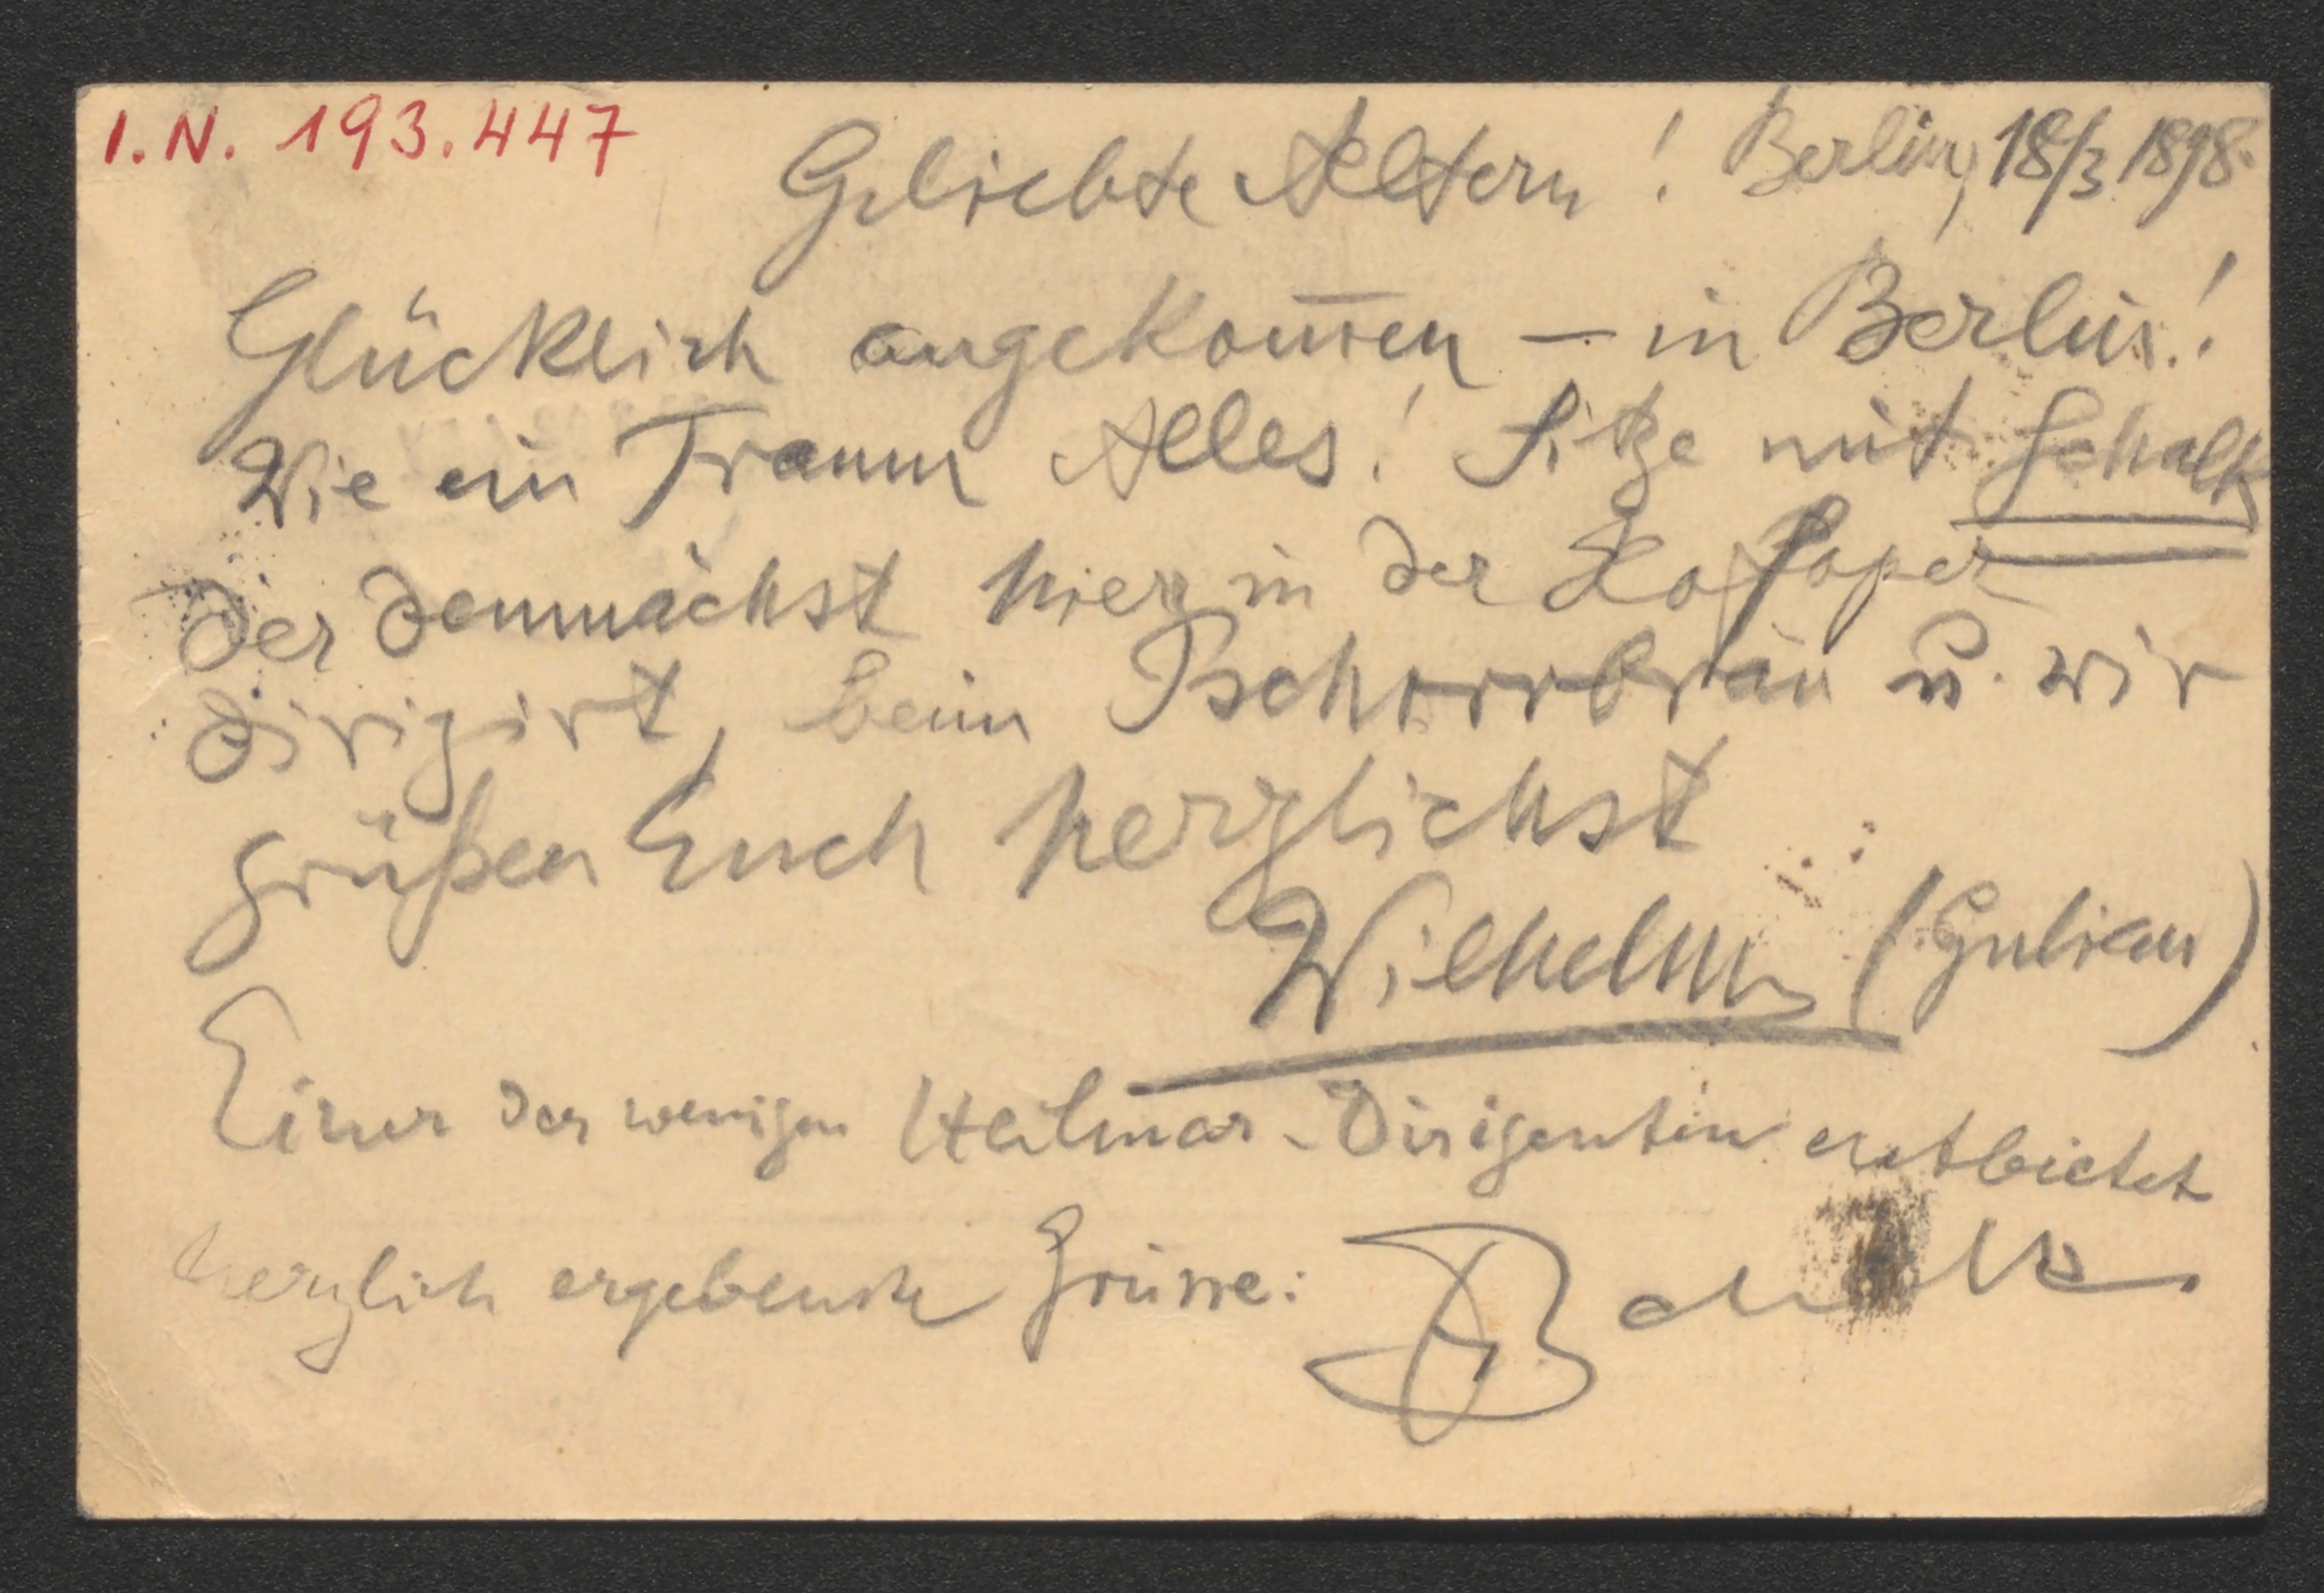 I.N. 193.447
Geliebte Aeltern! Berlin, 18/3 1898.
Glücklich angekom̄en – in Berlin!
Wie ein Traum Alles! Sitze mit Schalk
der demnächst hier in der Hofoper
dirigirt, beim Pschorrbräu u. wir
grüßen Euch herzlichst
Wilhelm
Einer der wenigen Heilmar-Dirigenten entbietet
herzlich ergebenste Grüsse: Schalk